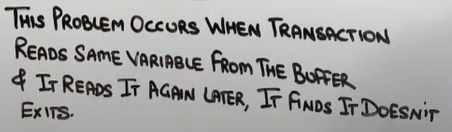 THIS PROBLEM OCCURS WHEN TRANSACTION
READS SAME VARIABLE FROM THE BUFFER
& IT READS IT AGAIN LATER, IT FINDS IT DOESN'T
EXITS.